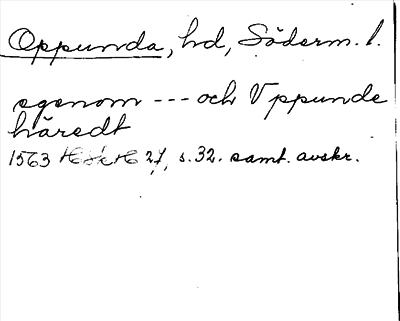 Oppunda, hd, Söderm. l.
egenom --- och Vppunde
häredt
1563 27, s. 32. samt. avskr.